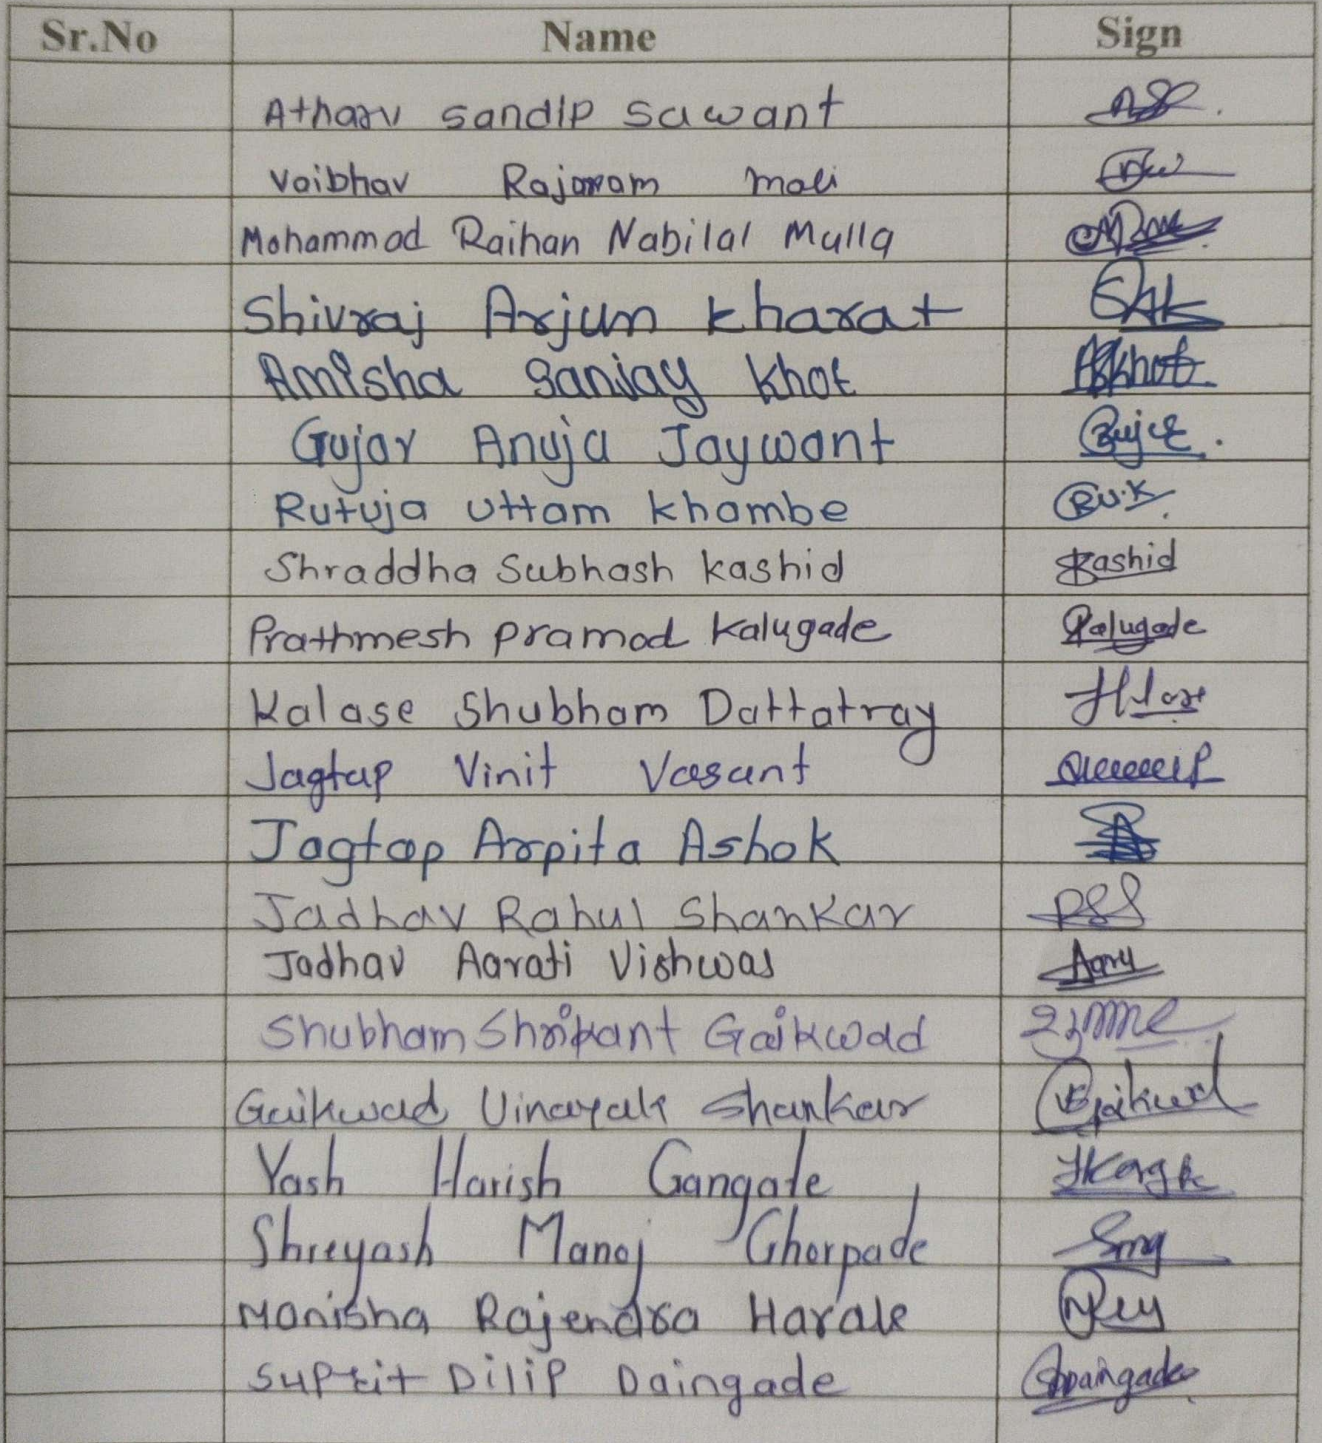 Sr.No Name Sign
Atharv Sandip Sawant
Vaibhav Rajaram Mali
Mohammad Raihan Nabilal Mulla
Shivraj Arjun Kharat
Amisha Sanjay Khot ASKhot
Gujar Anuja Jaywant
Rutuja Uttam Khambe R.U.K
Shraddha Subhash Kashid Kashid
Prathmesh Pramod Kalugade Palugade
Kalase Shubham Dattatray
Jagtap Vinit Vasant
Jagtap Arpita Ashok
Jadhav Rahul Shankar
Jadhav Aarati Vishwas
Shubham Shrikant Gaikwad
Gaikwad Vinayak Shankar
Yash Harish Gangate
Shreyash Manoj Ghorpade Smg
Manisha Rajendra Harale
Suprit Dilip Daingade